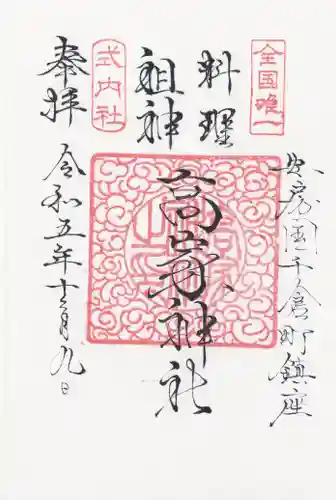 全国唯一
料理
祖神
式内社
奉拝
安房国千倉町鎮座
高家神社
令和五年十二月九日